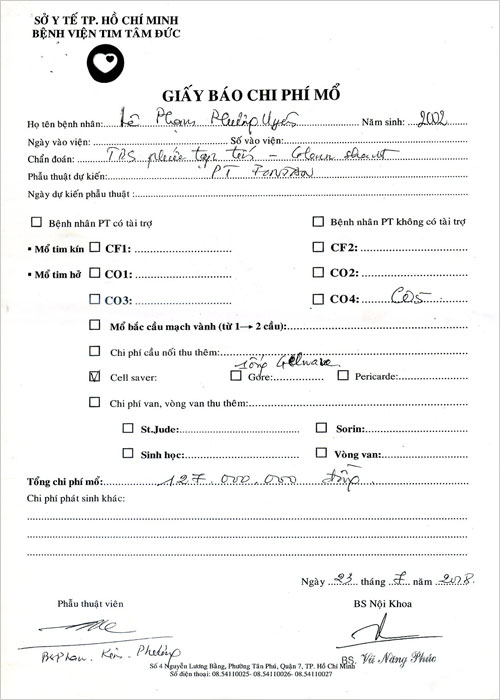 SỞ Y TẾ TP. HỒ CHÍ MINH
BỆNH VIỆN TIM TÂM ĐỨC
GIẤY BÁO CHI PHÍ MỔ
Họ tên bệnh nhân: Lê Phạm Phương Uyên Năm sinh: 2002
Ngày vào viện: Số vào viện:
Chẩn đoán: TBS phức tạp tím - Glenn shunt
Phẫu thuật dự kiến: PT FONTAN
Ngày dự kiến phẫu thuật :
Bệnh nhân PT có tài trợ Bệnh nhân PT không có tài trợ
• Mổ tim kín CF1: CF2:
• Mổ tim hở CO1: CO2:
CO3: CO4: CO5
Mổ bắc cầu mạch vành (từ 1→ 2 cầu):
Chi phí cầu nối thu thêm:
ống Gelwave
Cell saver: Gore: Pericarde:
Chi phí van, vòng van thu thêm:
St.Jude: Sorin:
Sinh học: Vòng van:
Tổng chi phí mổ: 127.000.000 đồng
Chi phí phát sinh khác:
Ngày 23 tháng 7 năm 2018
Phẫu thuật viên BS Nội Khoa
BS Phan. Kim. Phương
BS. Vũ Năng Phúc
Số 4 Nguyễn Lương Bằng, Phường Tân Phú, Quận 7, TP. Hồ Chí Minh
Số điện thoại: 08.54110025 - 08.54110026 - 08.54110027